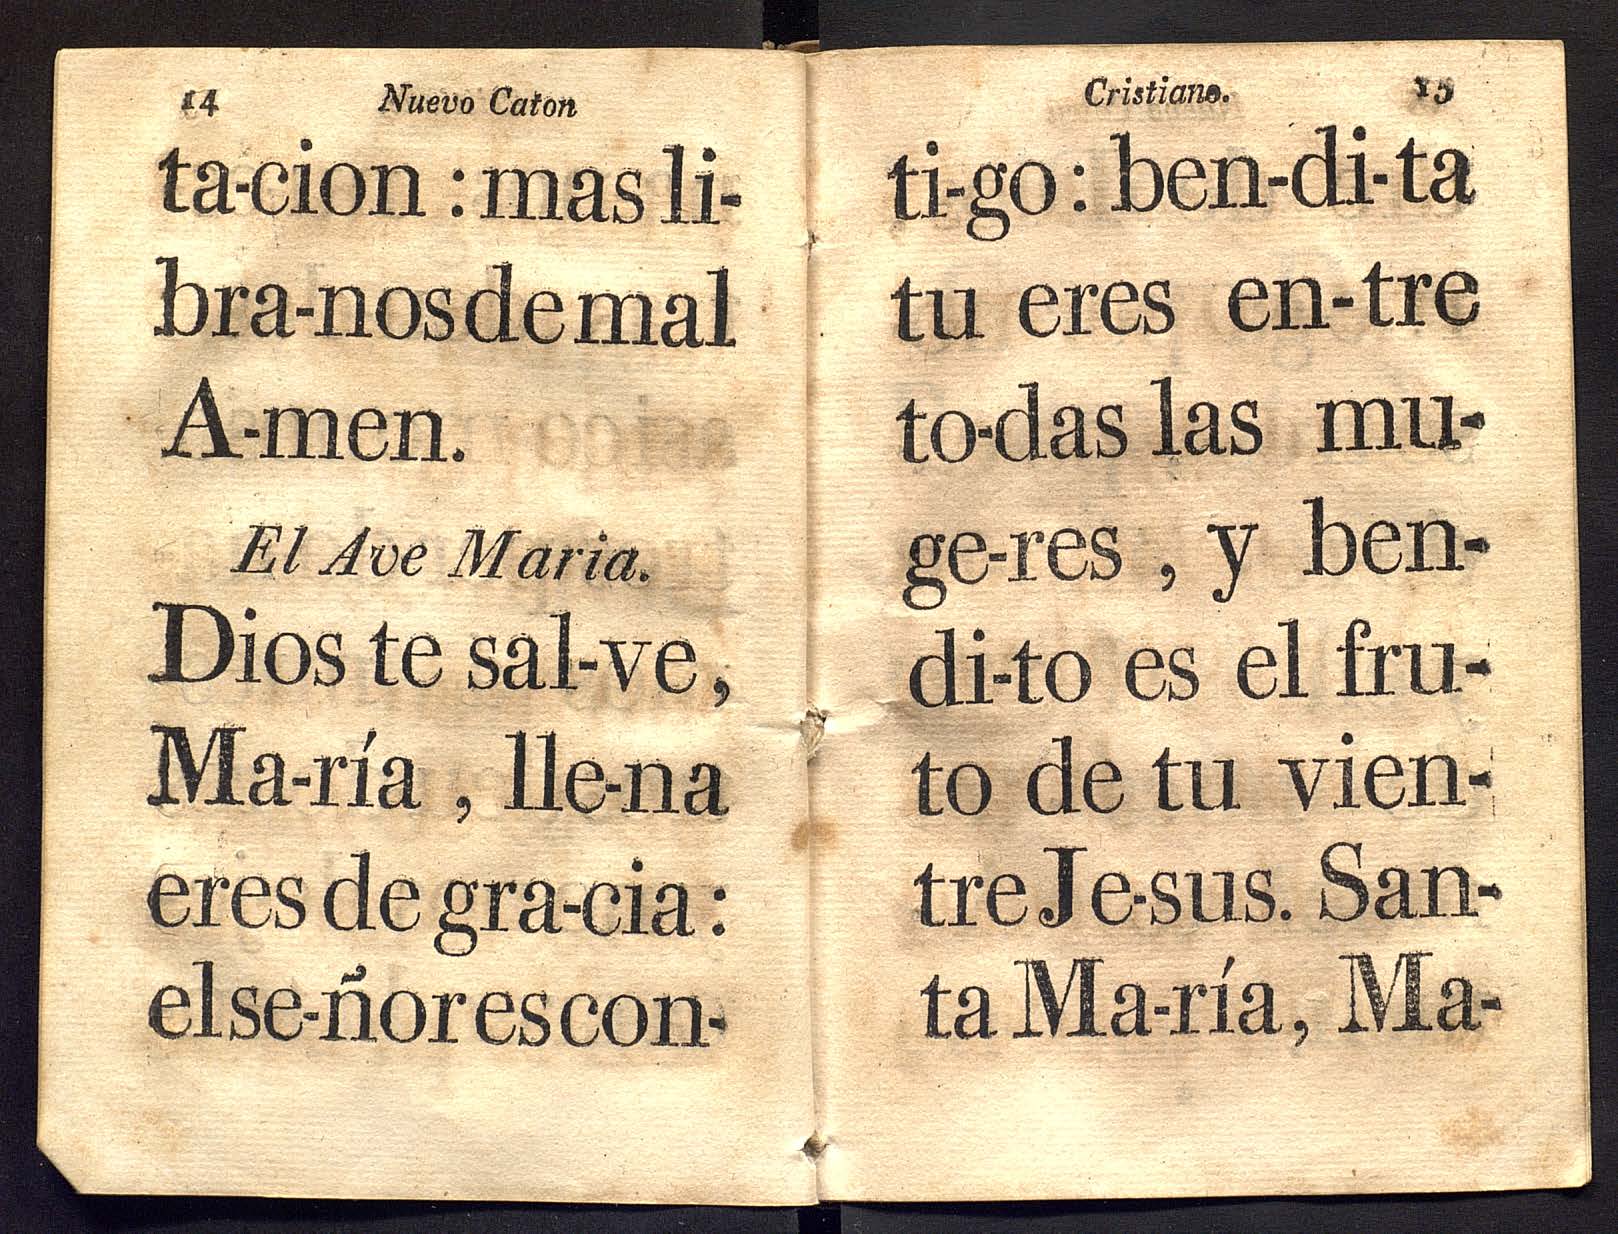 14 Nuevo Caton
ta-cion : mas li-
bra-nos de mal
A-men.
El Ave Maria.
Dios te sal-ve,
Ma-ría , lle-na
eres de gra-cia :
el se-ñor es con-
Cristiano. 15
ti-go : ben-di-ta
tu eres en-tre
to-das las mu-
ge-res , y ben-
di-to es el fru-
to de tu vien-
tre Je-sus. San-
ta Ma-ría, Ma-